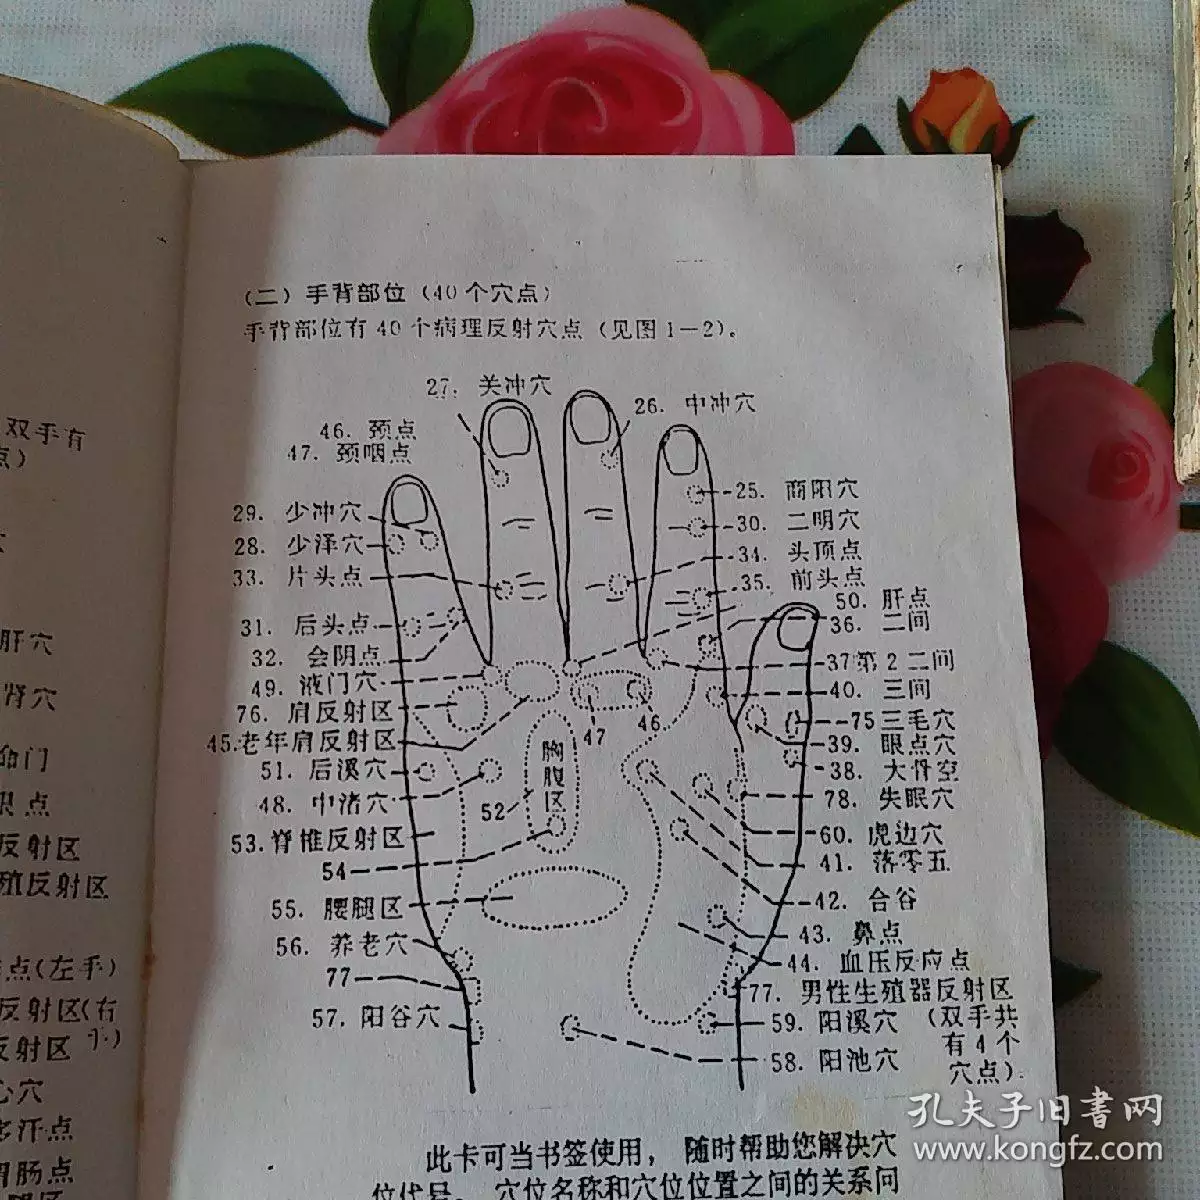 双手有
点）
肝穴
肾穴
命门
反射区
殖反射区
点（左手）
反射区（右
反射区 手）
心穴
多汗点
胃肠点
（二）手背部位（40个穴点）
手背部位有40个病理反射穴点（见图1—2）。
27. 关冲穴
26. 中冲穴
46. 颈点
47. 颈咽点
25. 商阳穴
29. 少冲穴
30. 二明穴
28. 少泽穴
34. 头顶点
33. 片头点
35. 前头点
50. 肝点
31. 后头点
36. 二间
32. 会阴点
37第2二间
49. 液门穴
40. 三间
76. 肩反射区
75三毛穴
47
46
45.老年肩反射区
39. 眼点穴
胸腹区
51. 后溪穴
38. 大骨空
48. 中渚穴
52
78. 失眠穴
53.脊椎反射区
60. 虎边穴
54
41. 落零五
55. 腰腿区
42. 合谷
56. 养老穴
43. 鼻点
77
44. 血压反应点
77. 男性生殖器反射区
57. 阳谷穴
59. 阳溪穴
（双手共
有4个
穴点）
58. 阳池穴
此卡可当书签使用，随时帮助您解决穴
位代号、穴位名称和穴位位置之间的关系问
孔夫子旧书网
www.kongfz.com